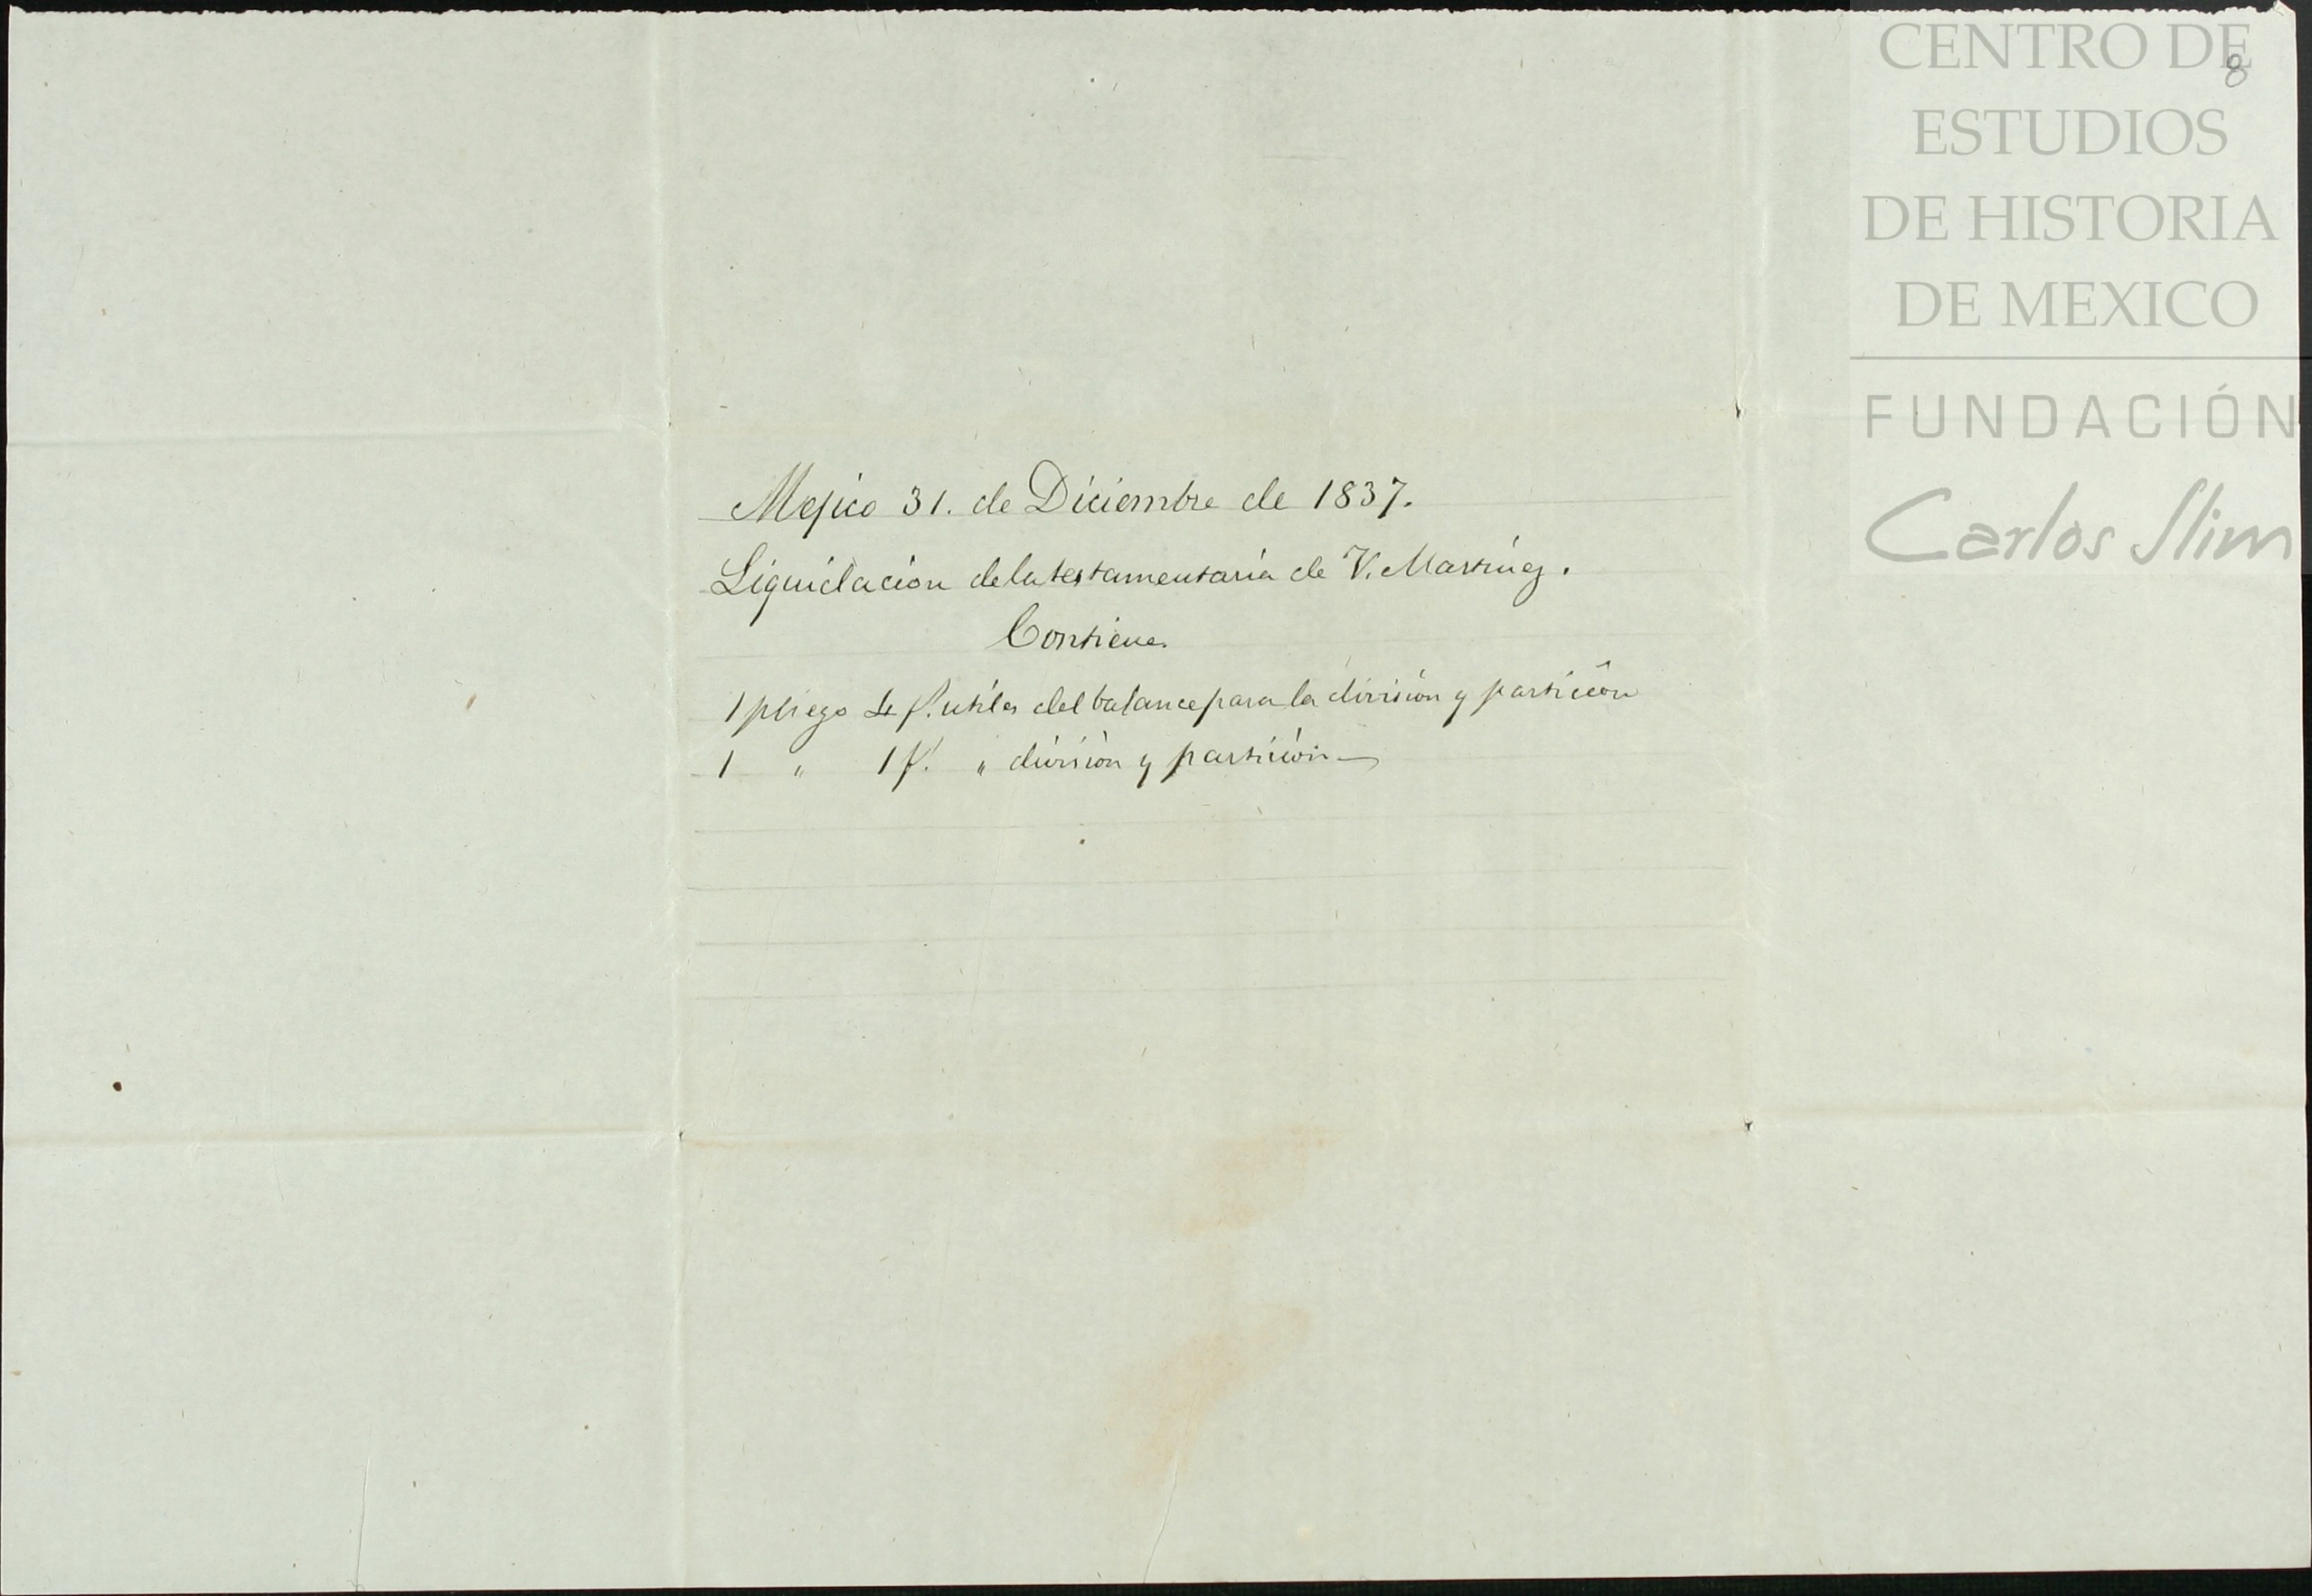 CENTRO DE
8
ESTUDIOS
DE HISTORIA
DE MEXICO
FUNDACIÓN
Carlos Slim
Mejico 31. de Diciembre de 1837.
Liquidacion de la testamentaria de V. Martinez.
Contiene
1 pliego 4 f. utiles del balance para la division y particion
1 " 1 f. " division y particion —